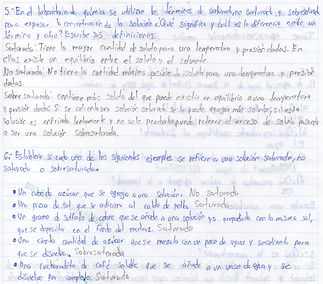 5-En el laboratorio de química se utilizan los términos de saturada, no saturada y sobresaturada
para expresar la concentración de la solución ¿Qué significa y cuál es la diferencia entre un
término y otro? Escribe sus definiciones.
Saturada: Tiene la mayor cantidad de soluto para una temperatura y presión dadas. En
ellas existe un equilibrio entre el soluto y el solvente
No saturada: No tiene la cantidad máxima posible de soluto para una temperatura y presión
dadas.
Sobre saturada: contiene más soluto del que puede existir en equilibrio a una temperatura
y presión dadas. Si se calienta una solución saturada se le puede agregar más soluto; si esta
solución es enfriada lentamente y no se le perturba puede retener el exceso de soluto pasando
a ser una solución sobresaturada.
6: Establece si cada uno de los siguientes ejemplos se refiere a una solución saturada, no
saturada o sobresaturada.
• Un cubo de azúcar que se agrega a una solución. No saturada
• Una pizca de sal que se adiciona al caldo de pollo. Saturada
• Un gramo de sulfato de cobre que se añade a una solución ya preparada con la misma sal,
que se deposita en el fondo del matraz. Saturada
• Una cierta cantidad de azúcar que se mezcla con un poco de agua y se calienta para
que se disuelva. Sobresaturada
• Una cucharadita de café soluble que se añade a un vaso de agua y se
disuelve por completo. Saturada